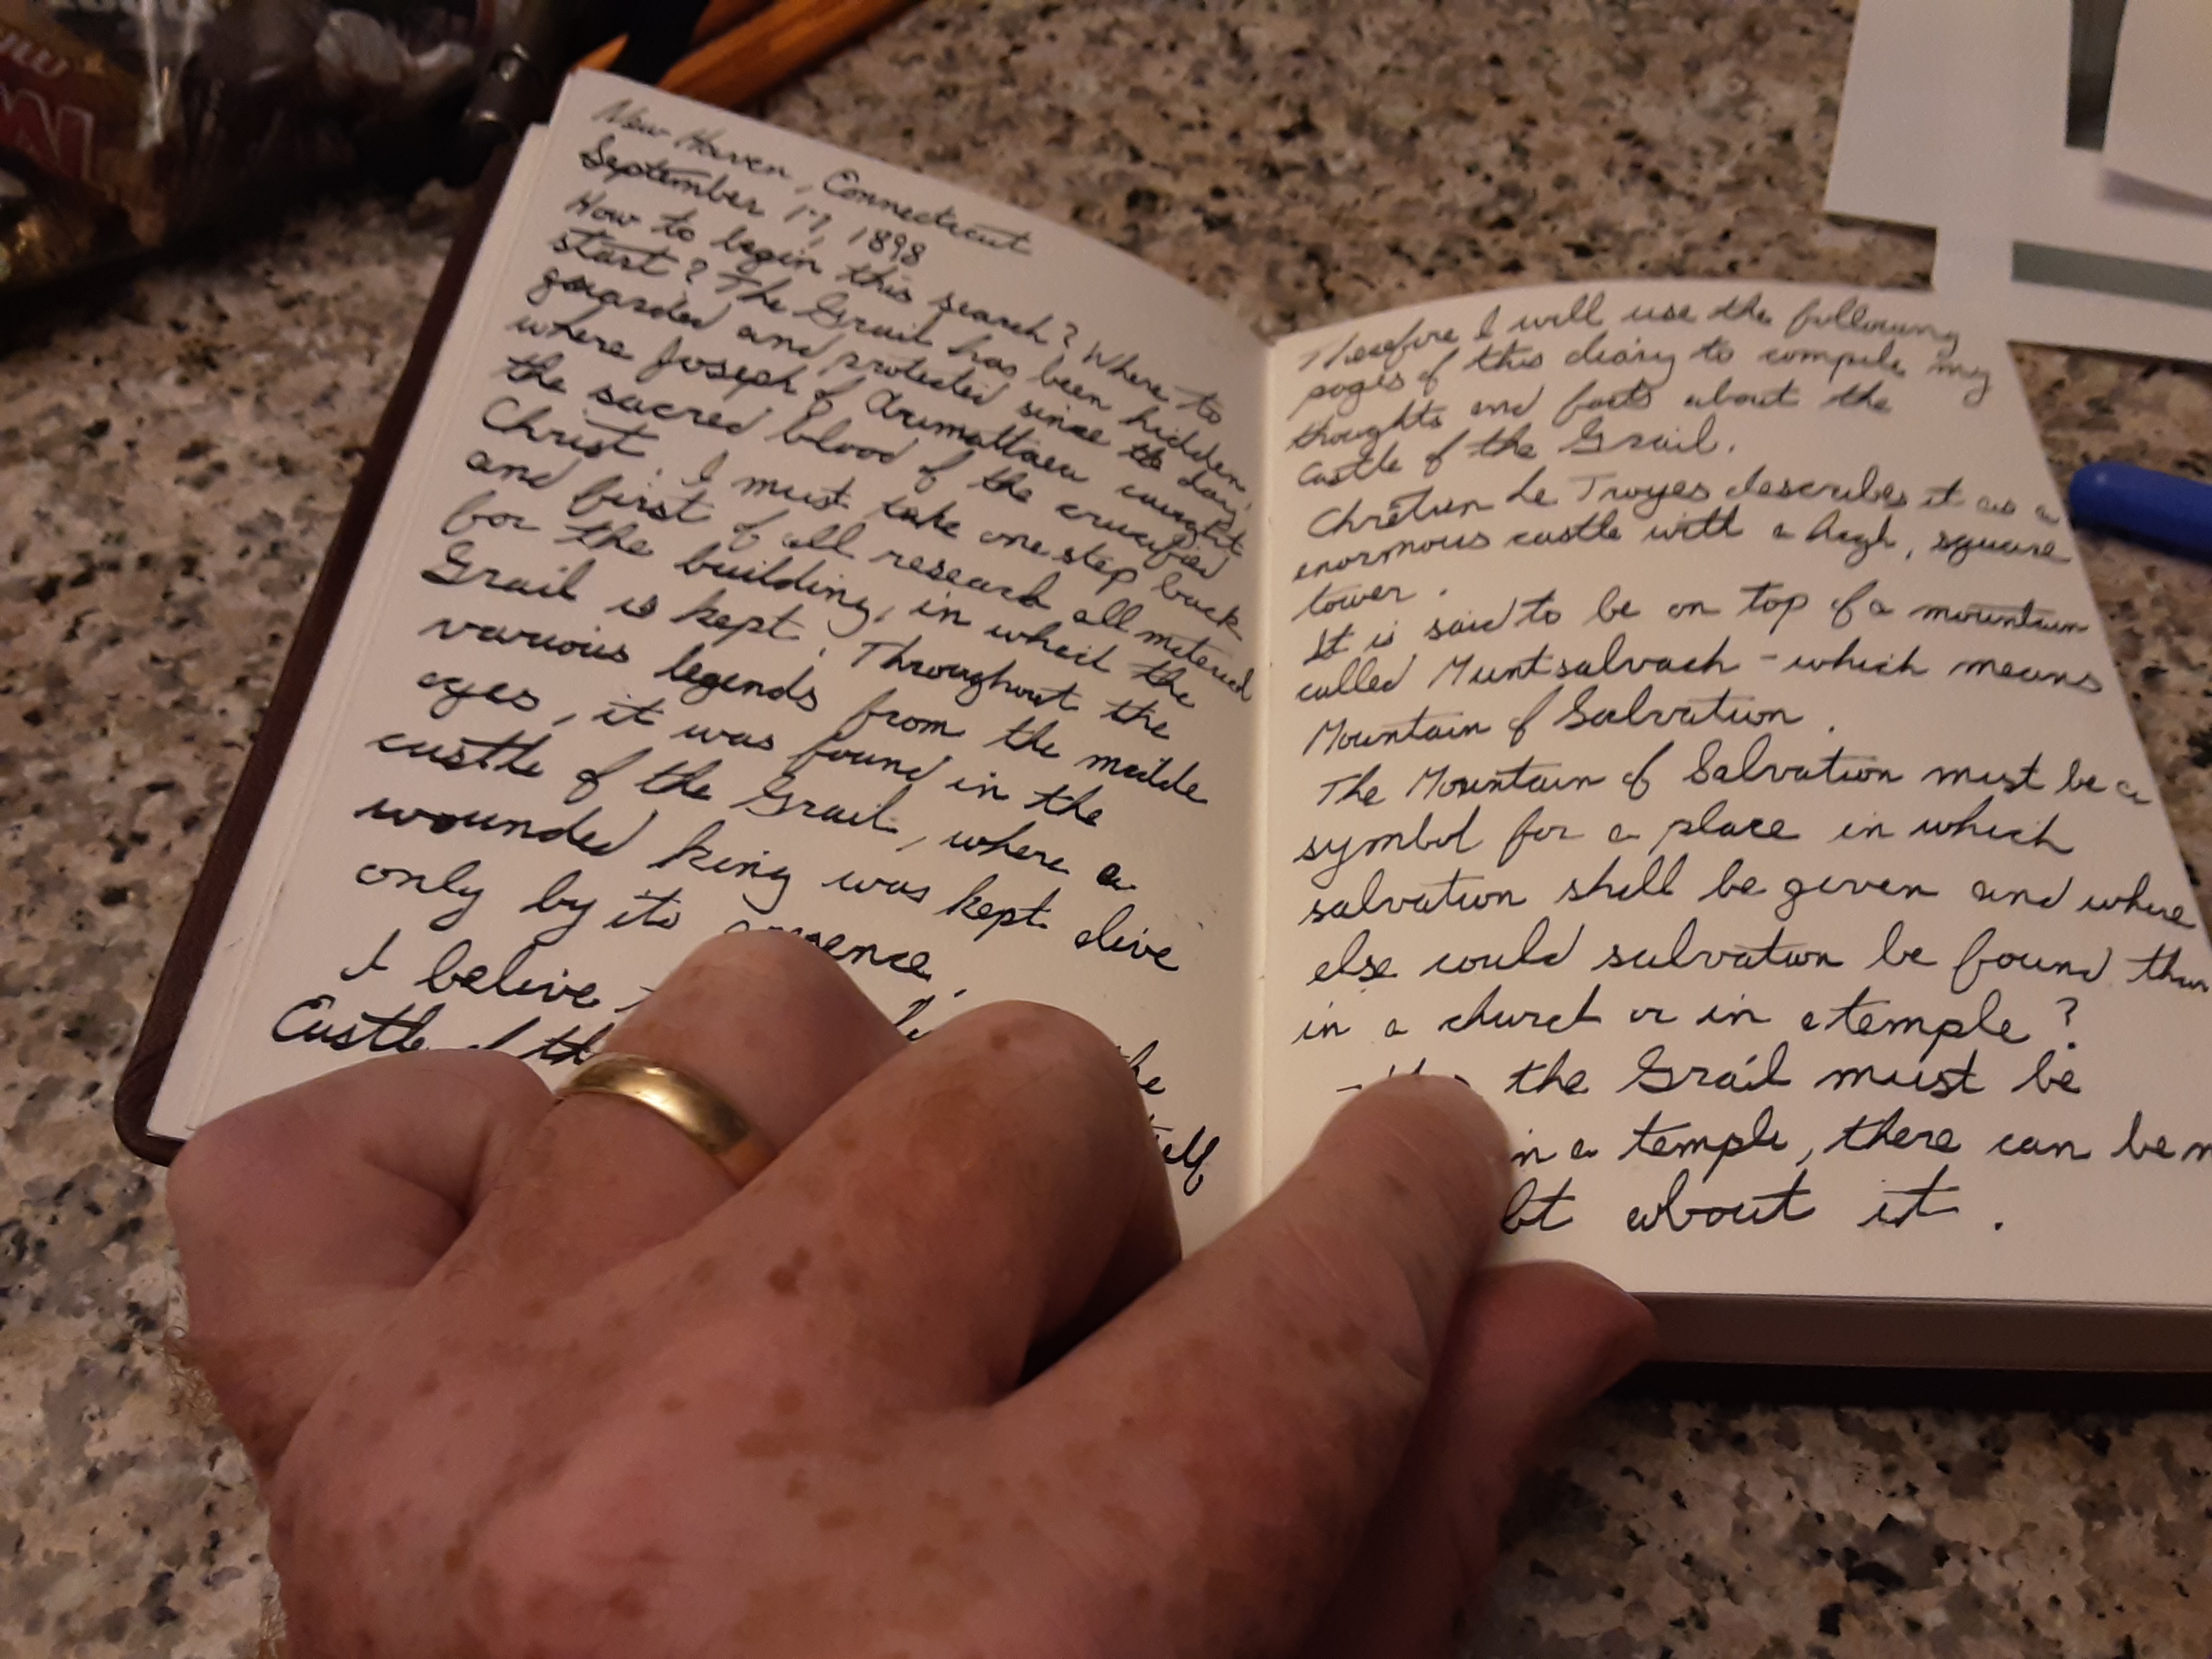 New Haven, Connecticut
September 17, 1898
How to begin this search? Where to
start? The Grail has been hidden,
guarded and protected since the day,
where Joseph of Arumattaea caught
the sacred blood of the crucified
Christ. I must take one step back
and first of all research all metereal
for the building, in wheich the
Grail is kept. Throughout the
various legends from the middle
ages, it was found in the
castle of the Grail, where a
wounded king was kept alive
only by its presence.
I belive
Castle of th
the
self
Therefore I will use the following
pages of this diary to compile my
thoughts and facts about the
Castle of the Grail.
Chrétien de Troyes describes it as a
enormous castle with a high, square
tower.
It is said to be on top of a mountain
called Muntsalvach - which means
Mountain of Salvation.
The Mountain of Salvation must be a
symbol for a place in which
salvation shall be given and where
else could salvation be found than
in a church or in a temple?
the Grail must be
in a temple, there can be n
bt about it.